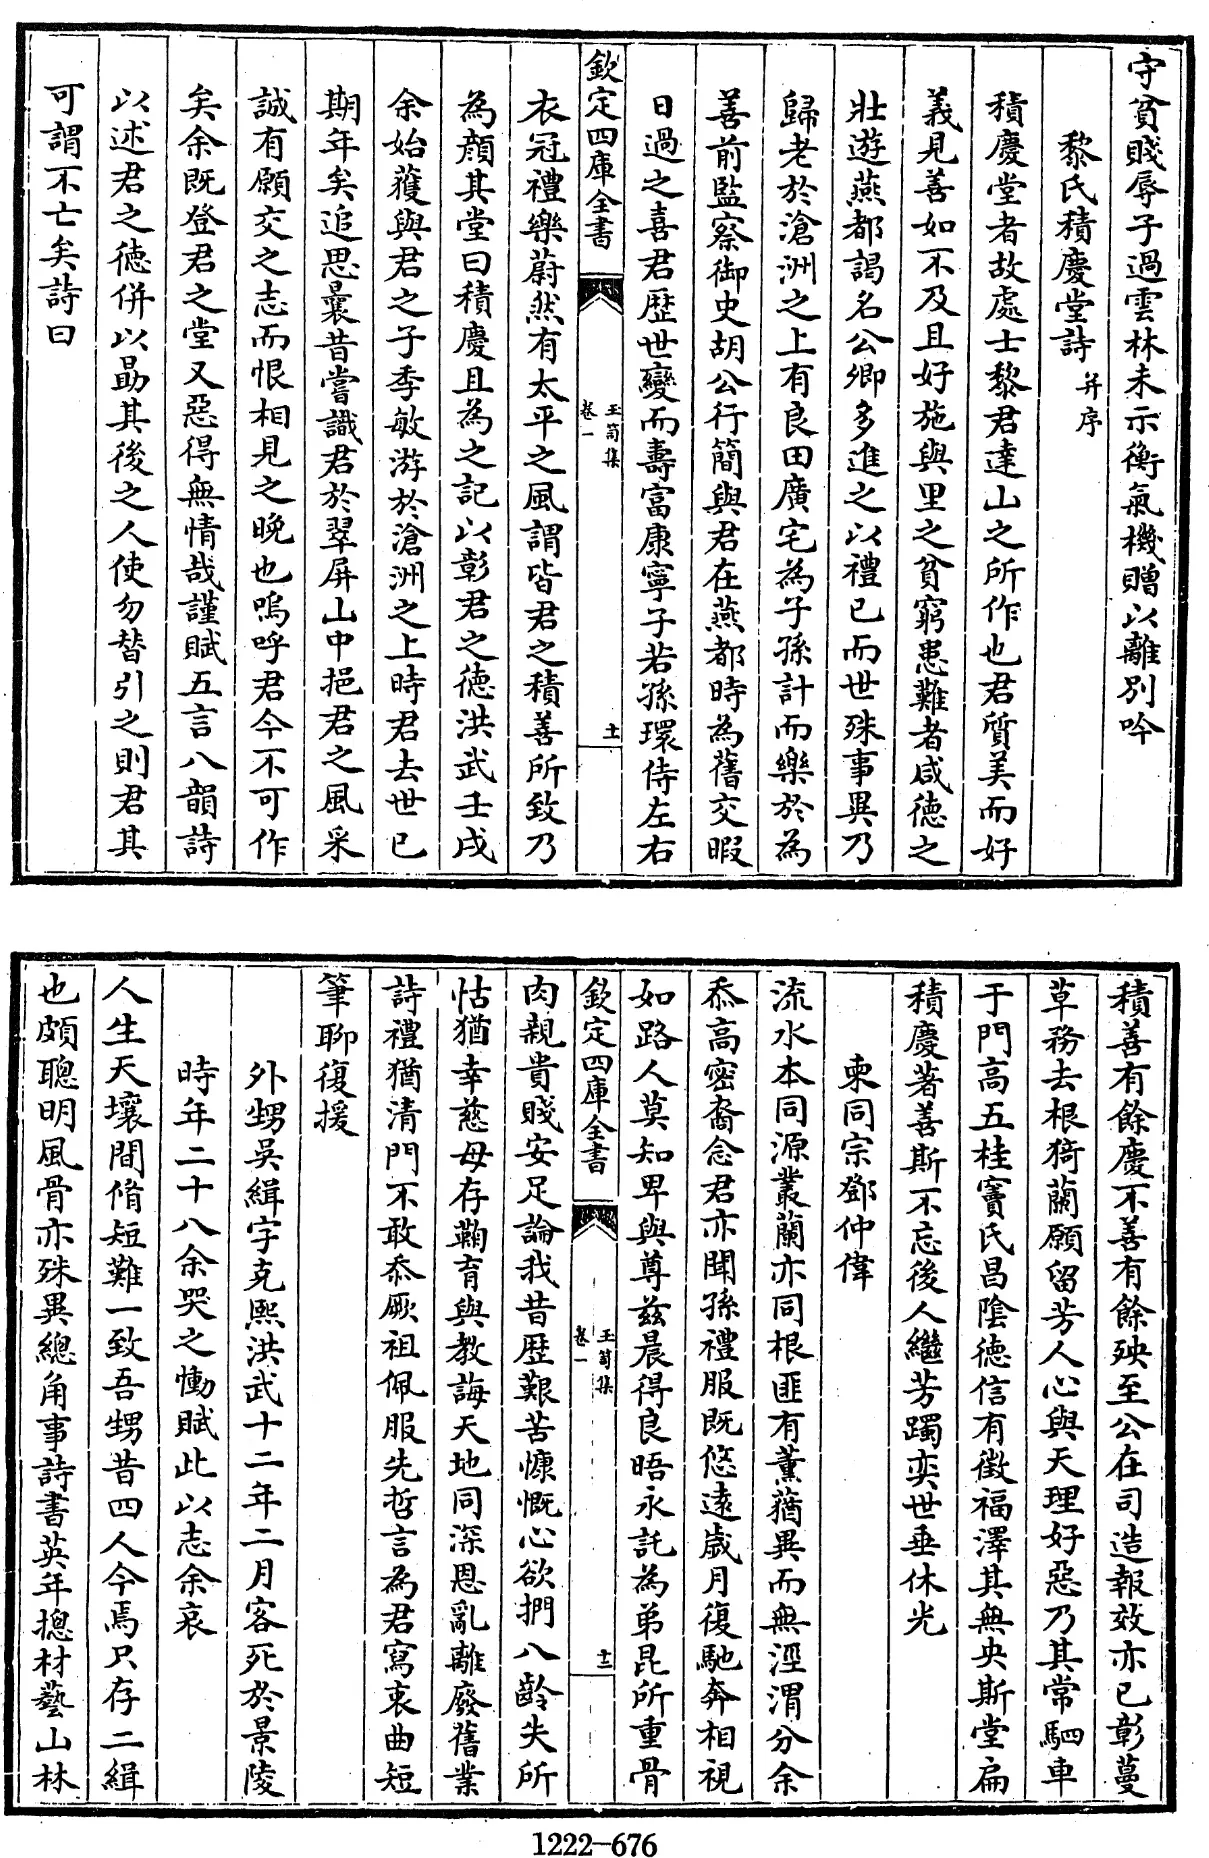 守貧賤辱子過雲林未示衡氣機贈以離別吟
黎氏積慶堂詩并序
積慶堂者故處士黎君達山之所作也君質美而好
義見善如不及且好施與里之貧窮患難者咸德之
壯遊燕都謁名公卿多進之以禮已而世殊事異乃
歸老於滄洲之上有良田廣宅為子孫計而樂於為
善前監察御史胡公行簡與君在燕都時為舊交暇
日過之喜君歷世變而壽富康寧子若孫環侍左右
欽定四庫全書
玉笥集
卷一
十一
衣冠禮樂蔚然有太平之風謂皆君之積善所致乃
為顏其堂曰積慶且為之記以彰君之德洪武壬戌
余始獲與君之子季敏游於滄洲之上時君去世已
期年矣追思曩昔嘗識君於翠屏山中挹君之風采
誠有願交之志而恨相見之晚也嗚呼君今不可作
矣余既登君之堂又惡得無情哉謹賦五言八韻詩
以述君之德併以勗其後之人使勿替引之則君其
可謂不亡矣詩曰
積善有餘慶不善有餘殃至公在司造報效亦已彰蔓
草務去根猗蘭願留芳人心與天理好惡乃其常駟車
于門高五桂竇氏昌陰德信有徵福澤其無央斯堂扁
積慶著善斯不忘後人繼芳躅奕世垂休光
柬同宗鄧仲偉
流水本同源叢蘭亦同根匪有薰蕕異而無涇渭分余
忝高密裔念君亦聞孫禮服既悠遠歲月復馳奔相視
如路人莫知卑與尊茲晨得良晤永託為弟昆所重骨
欽定四庫全書
玉笥集
卷一
十二
肉親貴賤安足論我昔歷艱苦慷慨心欲捫八齡失所
怙猶幸慈母存鞠育與教誨天地同深恩亂離廢舊業
詩禮猶清門不敢忝厥祖佩服先哲言為君寫衷曲短
筆聊復援
外甥吳緝字克熙洪武十二年二月客死於景陵
時年二十八余哭之慟賦此以志余哀
人生天壤間脩短難一致吾甥昔四人今焉只存二緝
也頗聰明風骨亦殊異總角事詩書英年摠材藝山林
1222-676